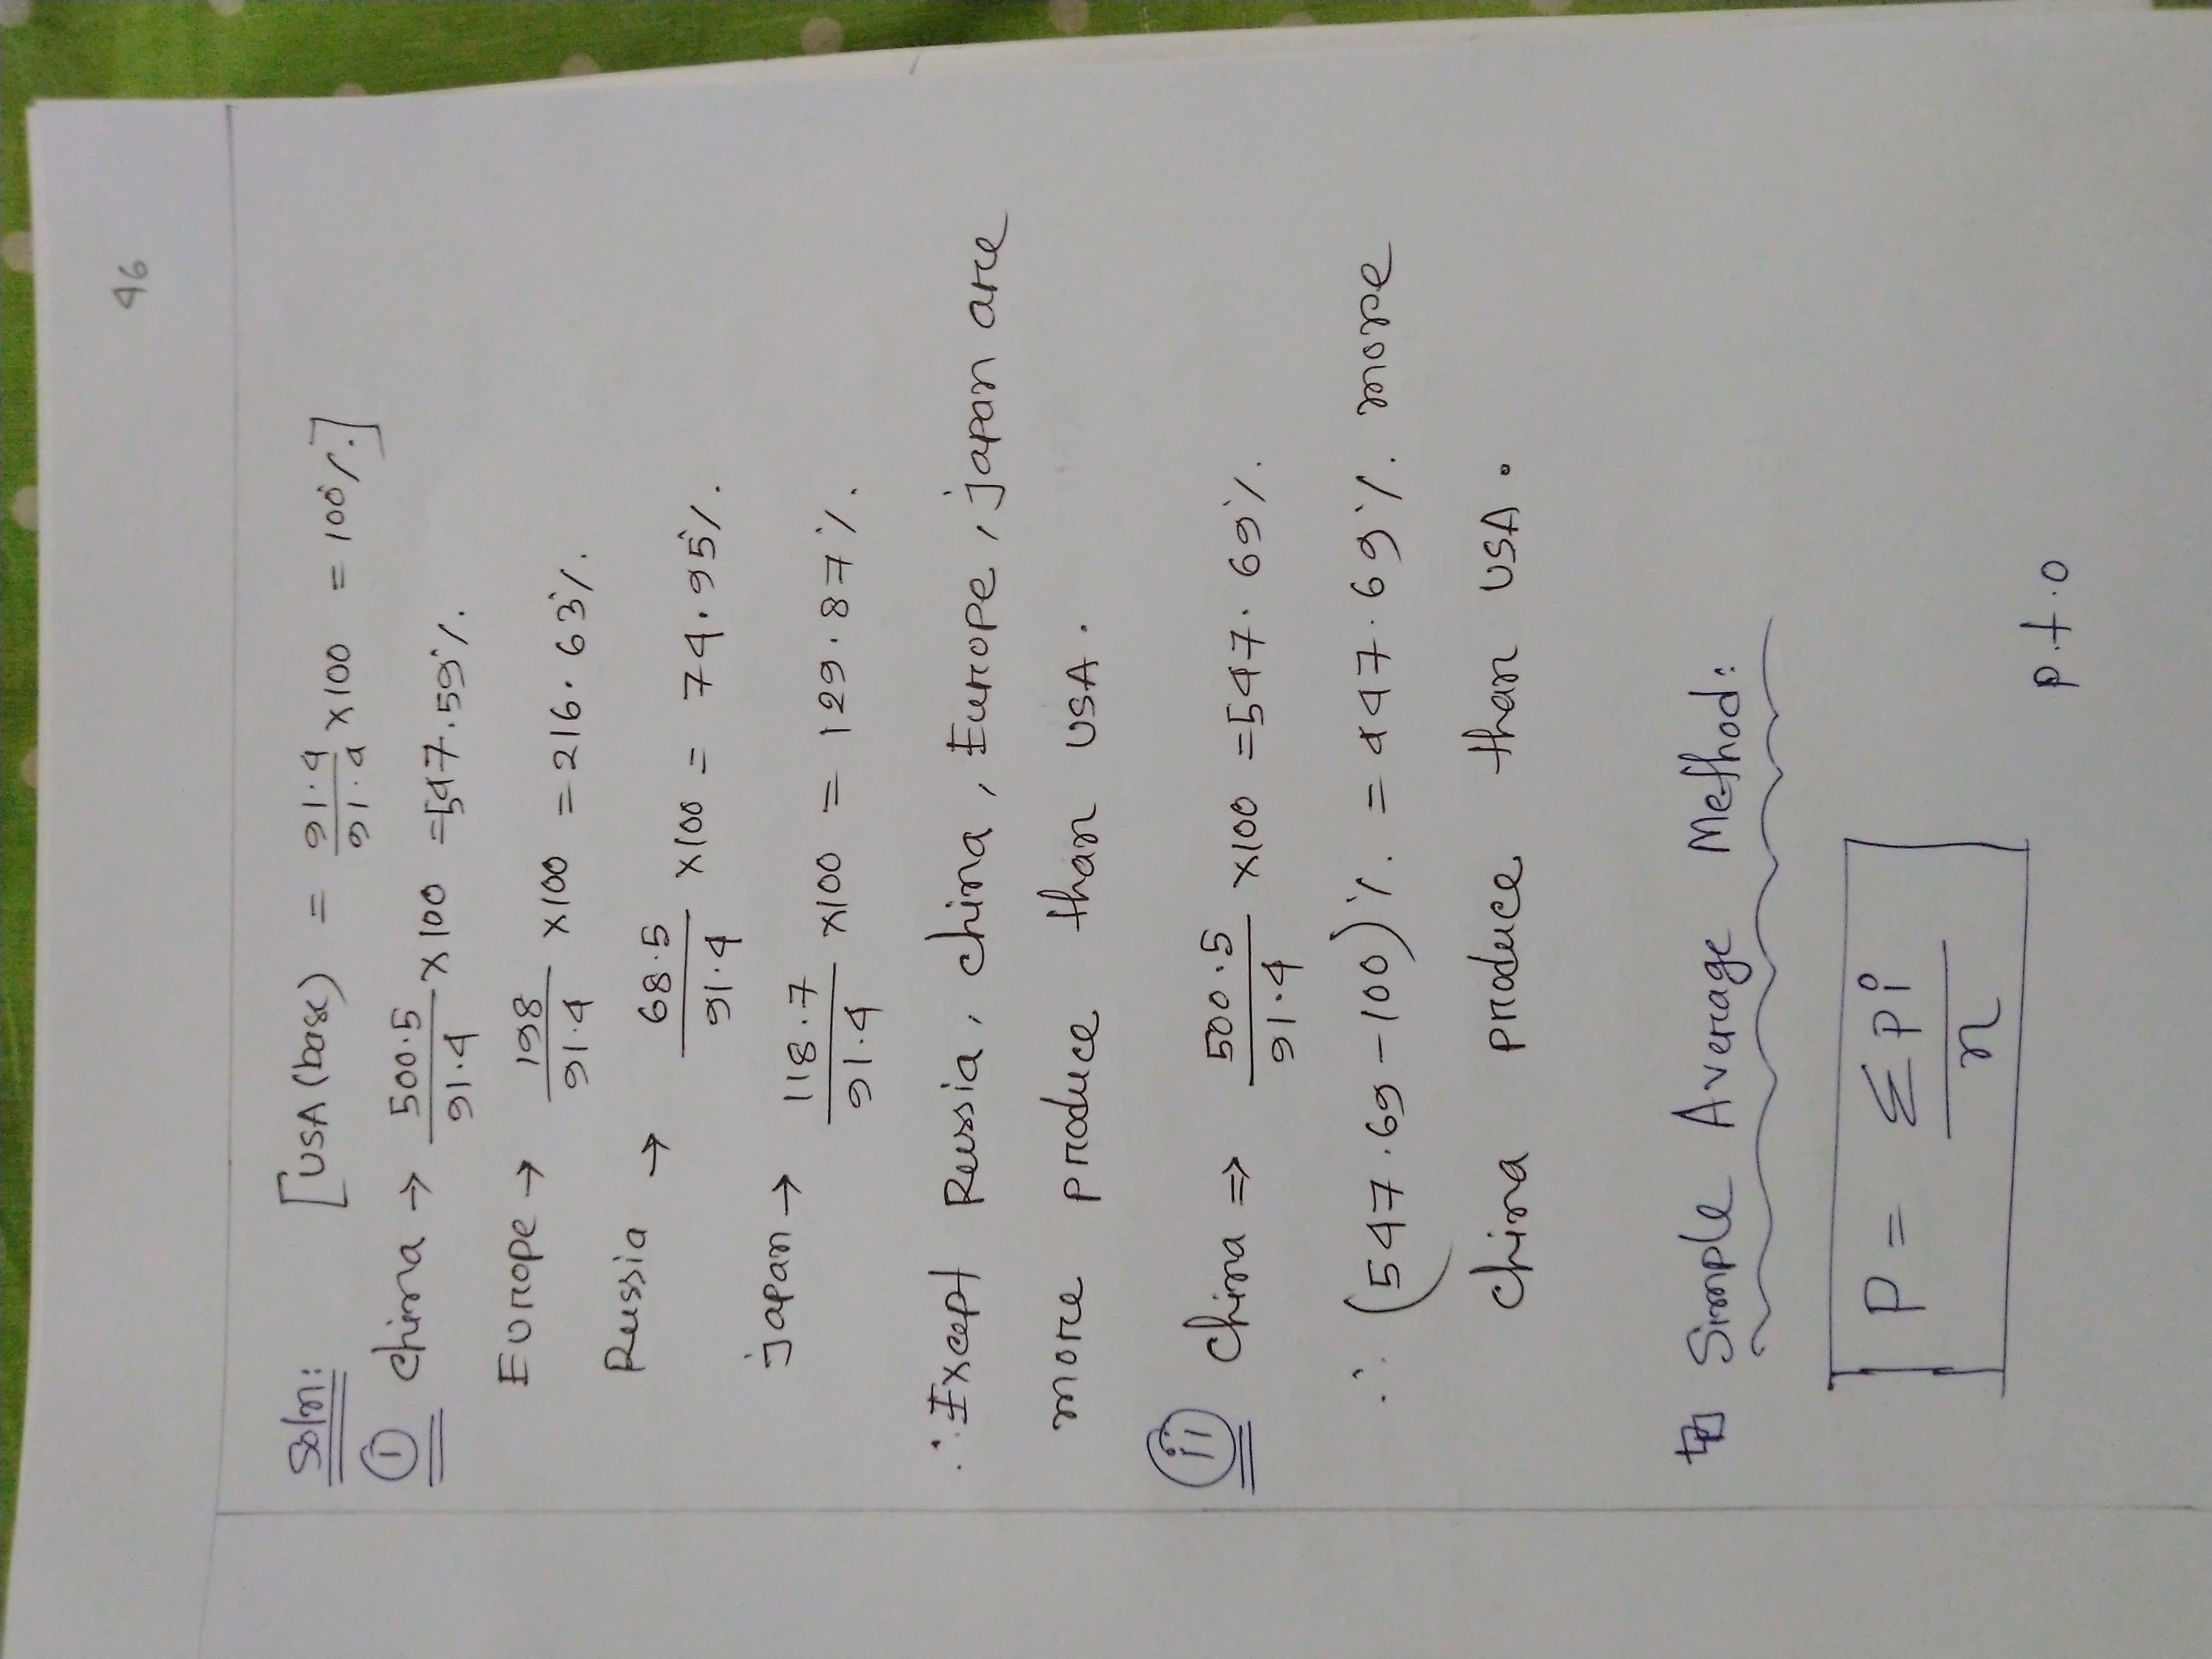 46
Soln: [USA (base) = 91.4/91.4 x100 = 100%.]
(i) China → 500.5/91.4 x100 = 547.59%.
Europe → 198/91.4 x100 = 216.63%.
Russia → 68.5/91.4 x100 = 74.95%.
japan → 118.7/91.4 x100 = 129.87%.
∴ Except Russia, China, Europe, japan are
more produce than USA.
(ii) China ⇒ 500.5/91.4 x100 = 547.69%.
∴ (547.69-100)%. = 447.69%. more
China produce than USA.
Simple Average Method:
P = Σpi/n
p.t.o